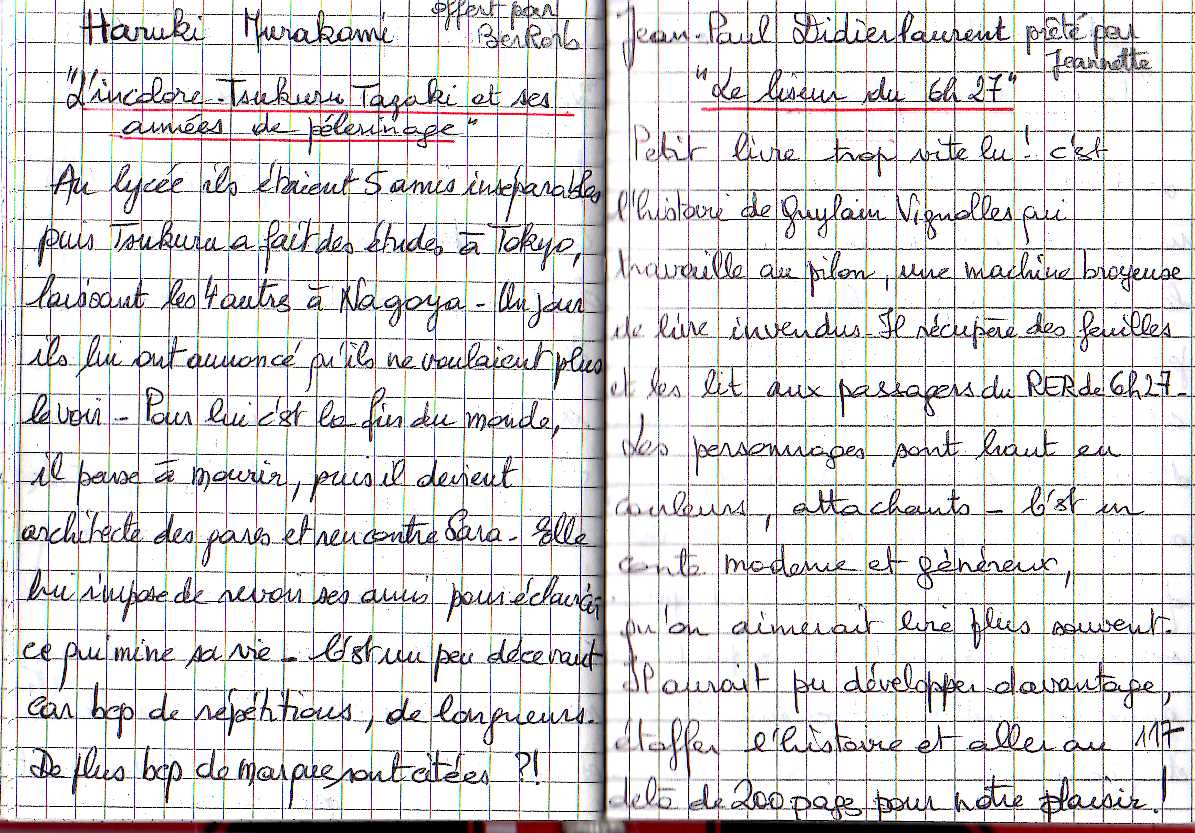 Haruki Murakami offert par
BerKorb
"L'incolore Tsukuru Tazaki et ses
années de pélerinage"
Au lycée ils étaient 5 amis inséparables
puis Tsukuru a fait des études à Tokyo,
laissant les 4 autres à Nagoya - Un jour
ils lui ont annoncé qu'ils ne voulaient plus
le voir - Pour lui c'est la fin du monde,
il pense à mourir, puis il devient
architecte des gares et rencontre Sara - Elle
lui impose de revoir ses amis pour éclaircir
ce qui mine sa vie - C'est un peu décevant
car bcp de répétitions, de longueurs.
De plus bcp de marques sont citées ?!
Jean-Paul Didierlaurent prêté par
Jeannette
"Le liseur du 6h27"
Petit livre trop vite lu ! c'est
l'histoire de Guylain Vignolles qui
travaille au pilon, une machine broyeuse
de livre invendus - Il récupère des feuilles
et les lit aux passagers du RER de 6h27 -
Les personnages sont haut en
couleurs, attachants - C'est un
conte moderne et généreux,
qu'on aimerait lire plus souvent.
Il aurait pu développer davantage,
étoffer l'histoire et aller au 117
delà de 200 page pour notre plaisir !